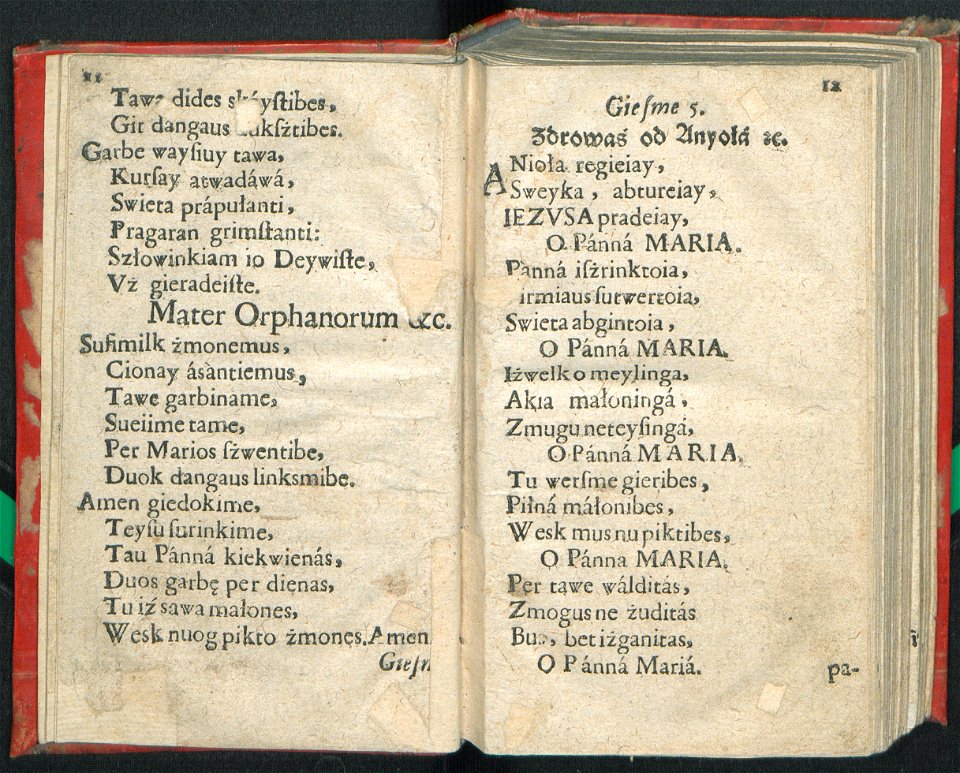 11
dides
Git dangaus
Garbe wayſiuy tawa,
Kurſay atwadáwá,
Swieta prápułanti,
Pragaran grimſtanti:
Szłowinkiam io Deywiſte,
Vż gieradeiſte.
Mater Orphanorum &c.
Suſimilk żmonemus,
Cionay ásántiemus,
Tawe garbiname,
Sueiime tame,
Per Marios ſżwentibe,
Duok dangaus linksmibe.
Amen giedokime,
Teyſu ſurinkime,
Tau Pánná kiekwienás,
Duos garbę per dienas,
Tu iź sawa małones,
Wesk nuog pikto żmones. Amen
12
Gieſme 5.
Zdrowaś od Anyołá ꝛc.
ANioła regieiay,
Sweyka, abtureiay,
IEZVSA pradeiay,
O Pánná MARIA.
Panná iſżrinktoia,
ſutwertoia,
Swieta abgintoia,
O Pánná MARIA.
Iżwelk o meylinga,
Akia małoningá,
Zmugu neteyſingá,
O Pánná MARIA.
Tu werſme gieribes,
Piłná máłonibes,
Wesk mus nu piktibes,
O Pánna MARIA.
Per tawe wálditás,
Zmogus ne żuditás
bet iżganitas,
O Pánná Mariá.
pa-